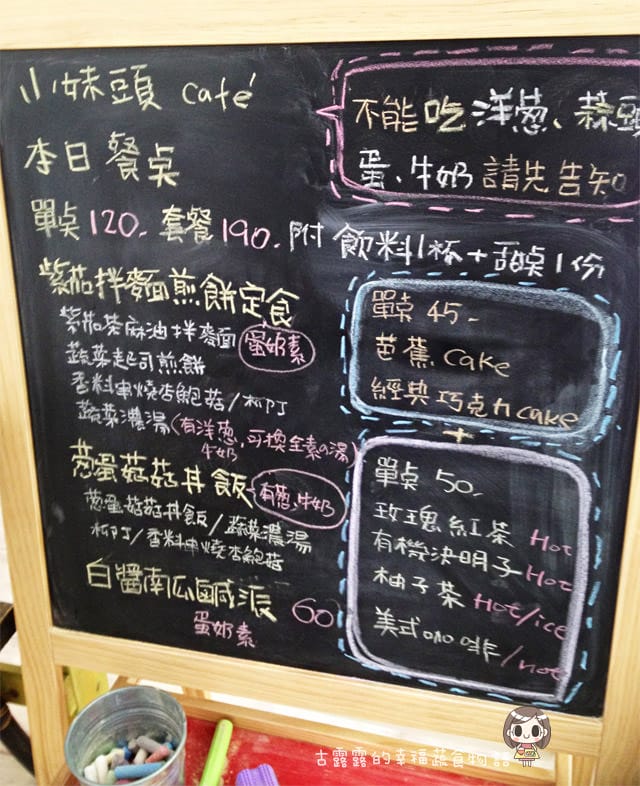 小妹頭 café
不能吃洋葱、蒜頭
蛋、牛奶請先告知
本日餐桌
單桌120.套餐190.附飲料1杯+甜桌1份
紫茄拌麵煎餅定食
紫茄茶麻油拌麵 蛋奶素
蔬菜起司煎餅
香料串燒杏鮑菇/柳丁
蔬菜濃湯(有洋葱,可換全素の湯)
牛奶
葱蛋菇菇丼飯 有葱、牛奶
葱蛋菇菇丼飯/蔬菜濃湯
柳丁/香料串燒杏鮑菇
白醬南瓜鹹派 60
蛋奶素
單桌 45.
芭蕉 cake
經典巧克力cake
+
單桌 50.
玫瑰紅茶 Hot
有機決明子Hot
柚子茶 Hot/ice
美式咖啡/hot
古露露的幸福蔬食物語